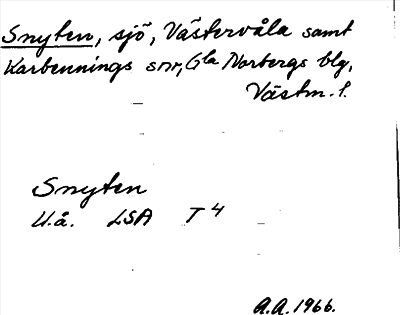 Snyten, sjö, Västervåla samt
Karbennings snr, Gla Norbergs blg,
Västm. l.
Snyten
U.å. LSA T4
A.A. 1966.